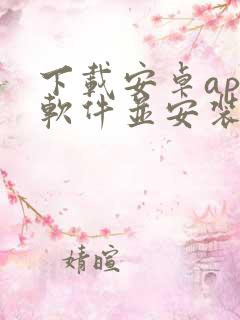 下載安卓ap
軟件並安裝
婧暄